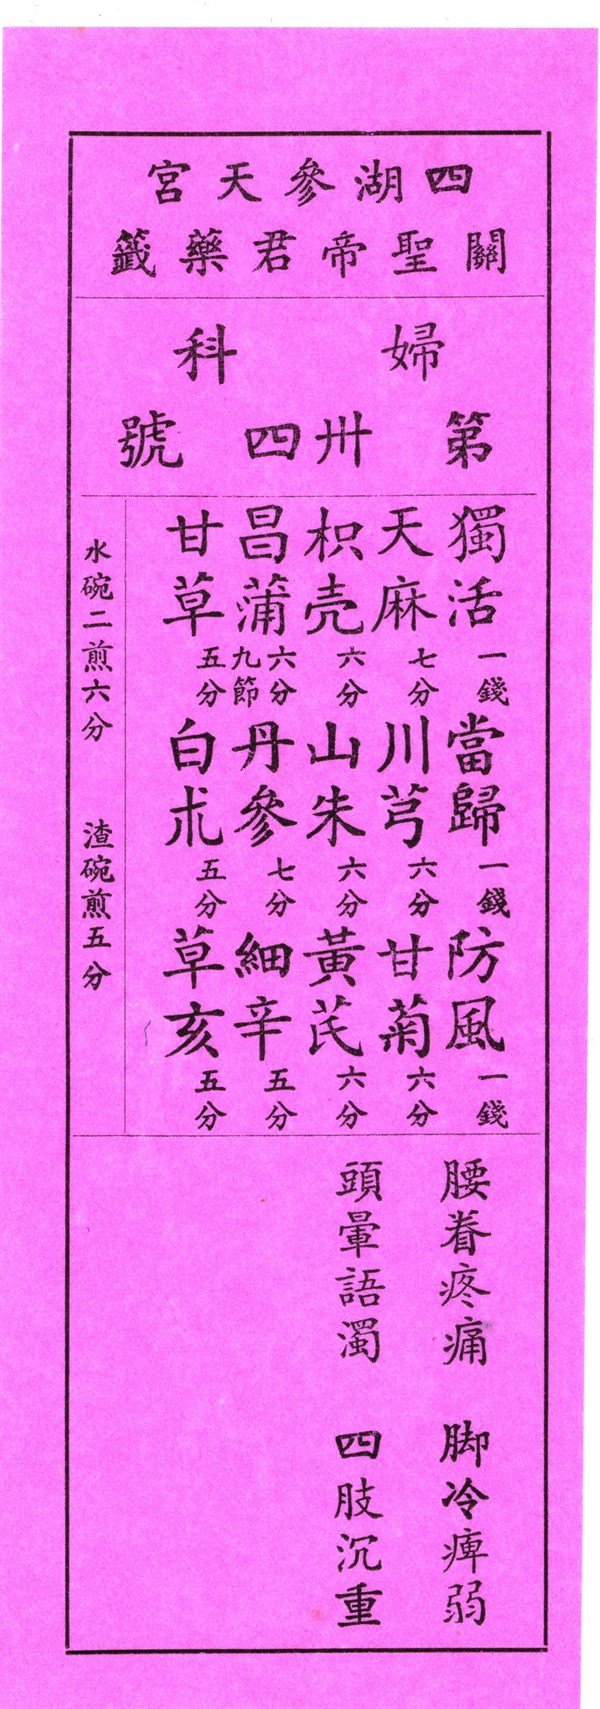 四湖參天宮
關聖帝君藥籤
婦科
第卅四號
獨活一錢 當歸一錢 防風一錢
天麻七分 川芎六分 甘菊六分
枳壳六分 山朱六分 黃芪六分
昌蒲九節六分 丹參七分 細辛五分
甘草五分 白朮五分 草亥五分
水碗二煎六分 渣碗煎五分
腰眷疼痛 脚冷痺弱
頭暈語濁 四肢沉重